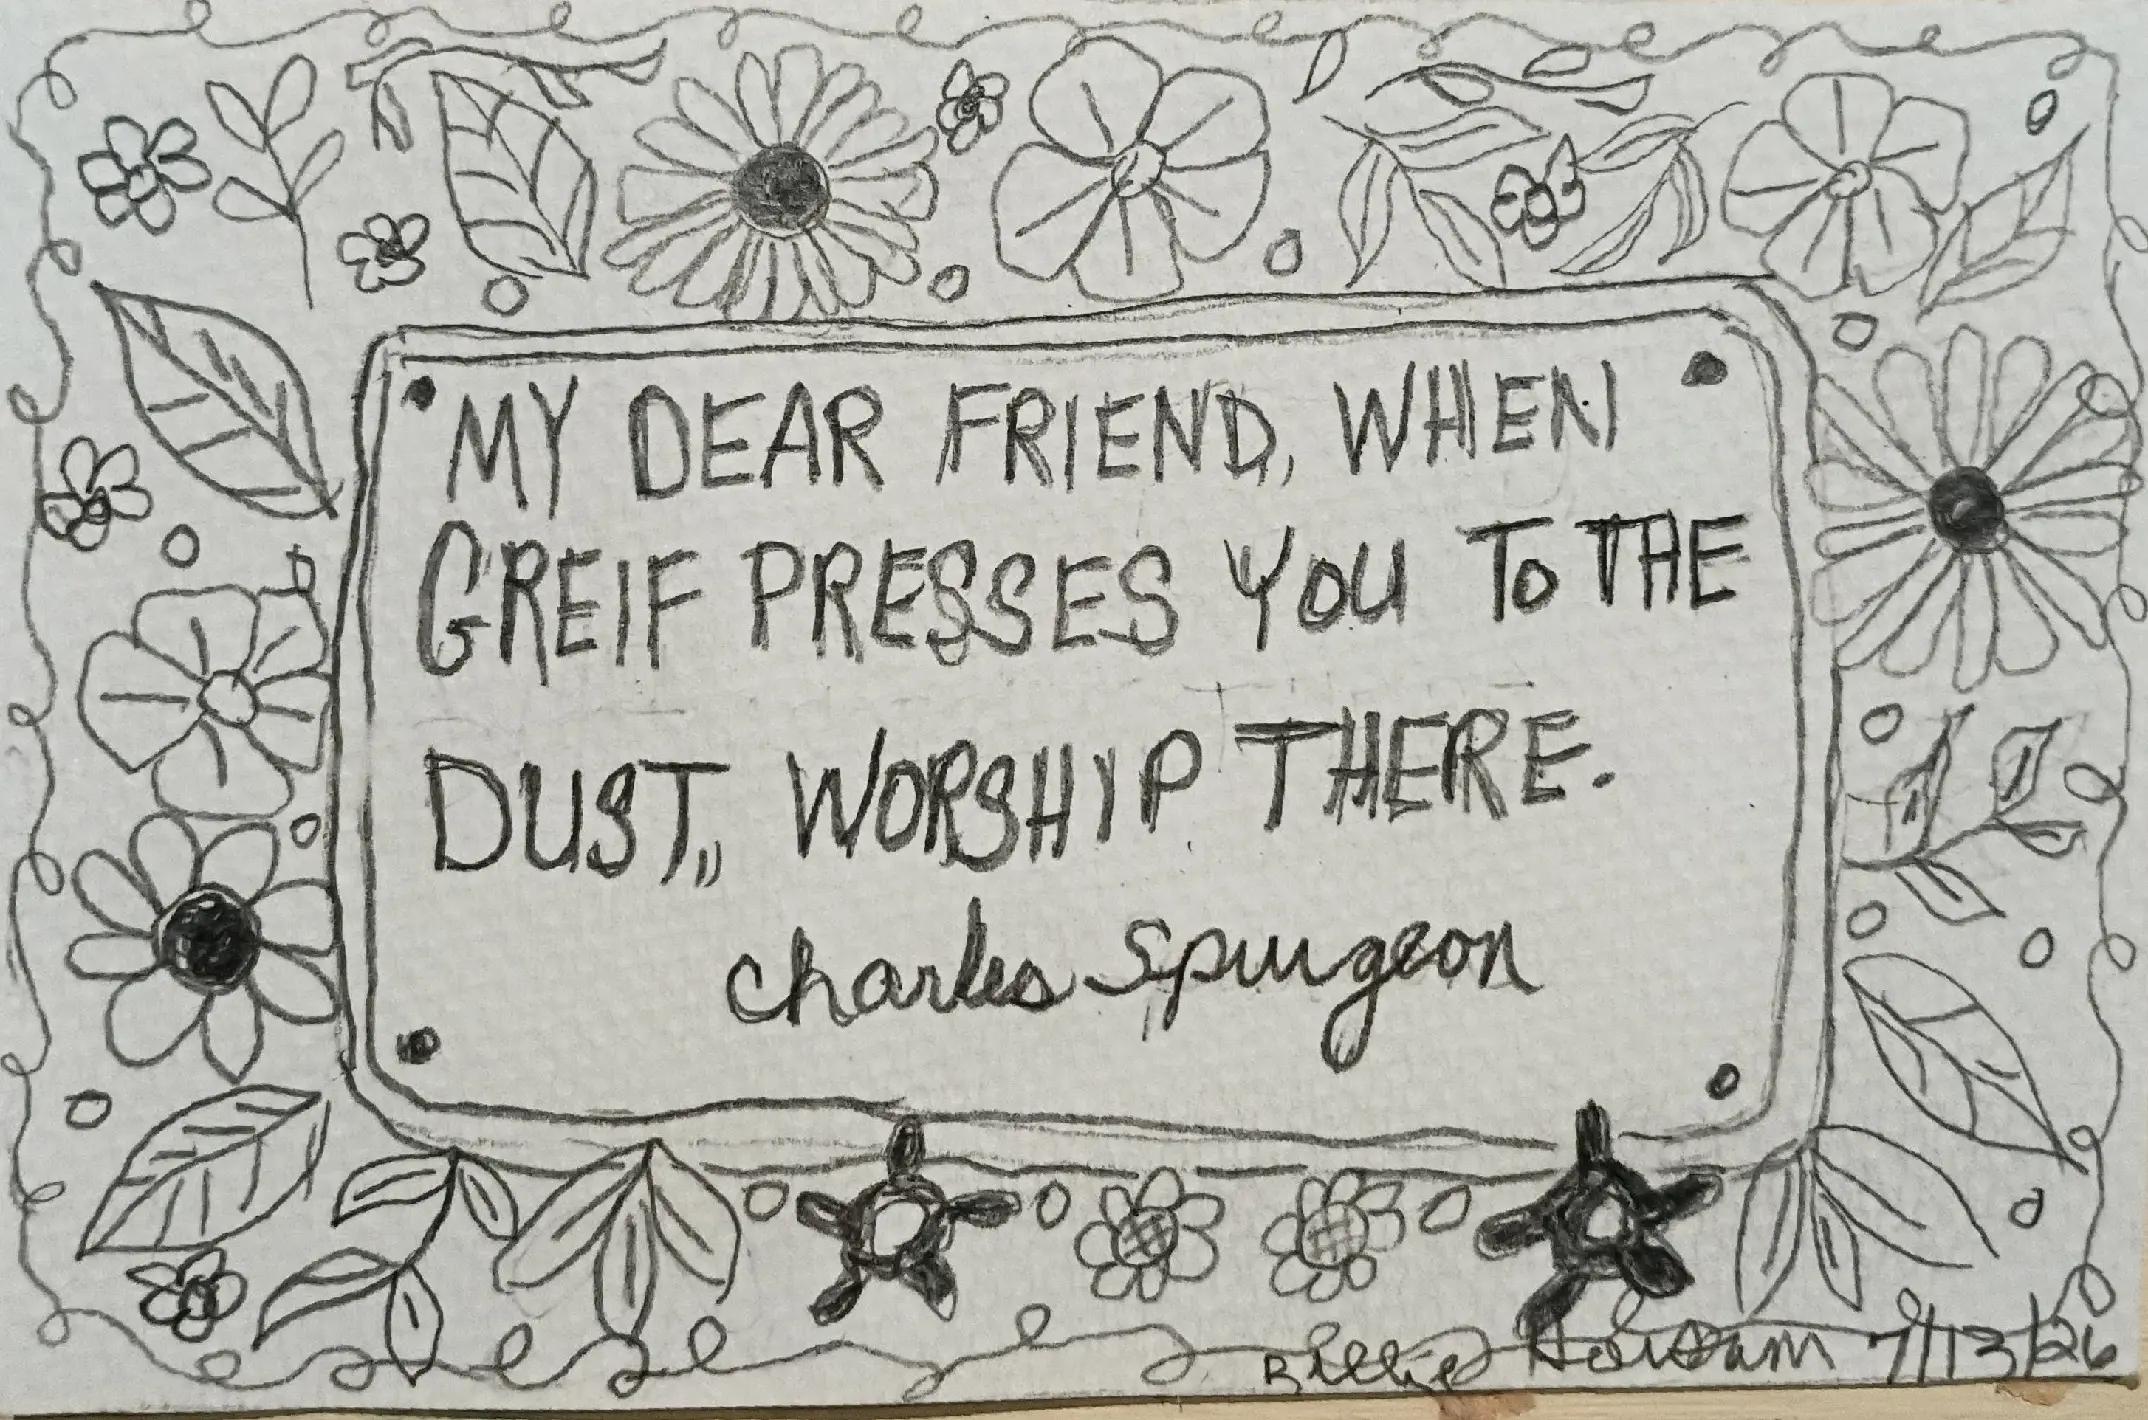 MY DEAR FRIEND, WHEN
GREIF PRESSES YOU TO THE
DUST,, WORSHIP THERE.
Charles Spurgeon
Billie 7/13/26